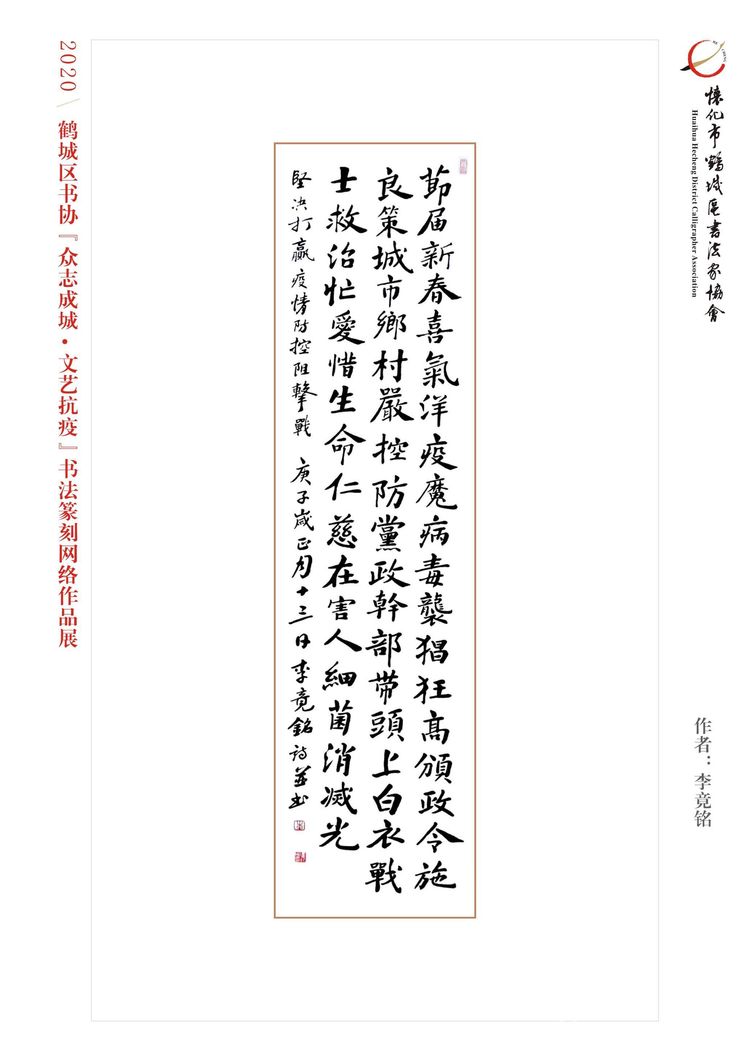 2020
鹤城区书协『众志成城·文艺抗疫』书法篆刻网络作品展
懷化市鶴城區書法家協會
Huaihua Hecheng District Calligrapher Association
節届新春喜氣洋疫魔病毒襲猖狂高頒政令施
良策城市鄉村嚴控防黨政幹部带頭上白衣戰
士救治忙愛惜生命仁慈在害人細菌消滅光
堅决打贏疫情防控阻擊戰 庚子歲正月十三日李竟銘詩並书
作者：李竟铭